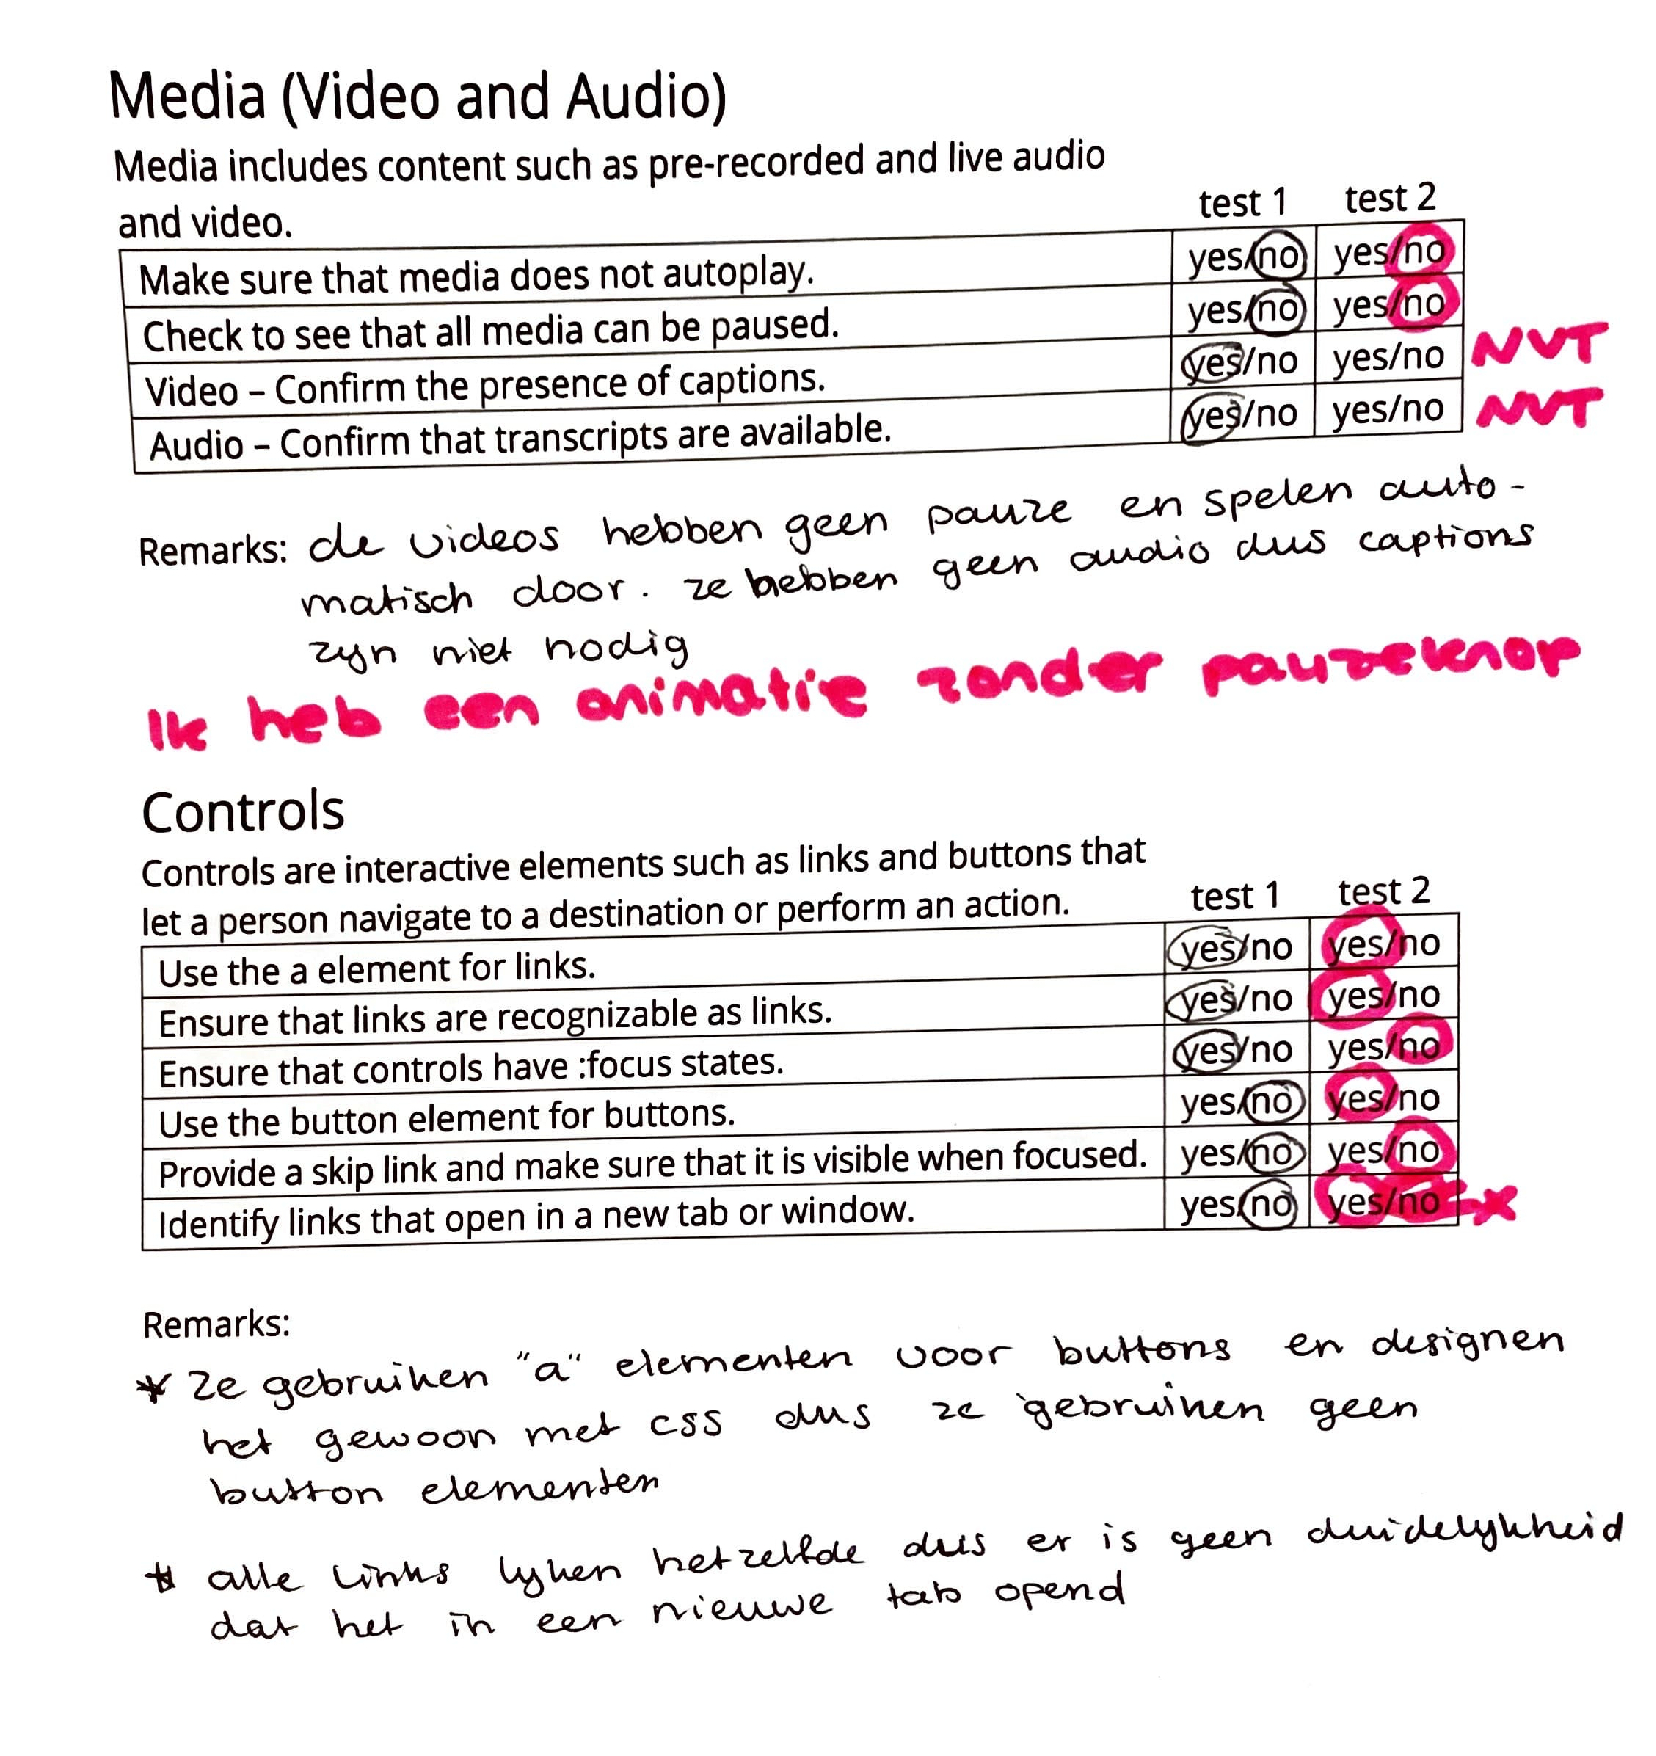 Media (Video and Audio)
Media includes content such as pre-recorded and live audio
and video.
test 1 test 2
Make sure that media does not autoplay. yes/no yes/no
Check to see that all media can be paused. yes/no yes/no
Video – Confirm the presence of captions. yes/no yes/no NVT
Audio – Confirm that transcripts are available. yes/no yes/no NVT
Remarks: de videos hebben geen pauze en spelen auto-
matisch door. ze hebben geen audio dus captions
zijn niet nodig
Ik heb een animatie zonder pauzeknop
Controls
Controls are interactive elements such as links and buttons that
let a person navigate to a destination or perform an action.
test 1 test 2
Use the a element for links. yes/no yes/no
Ensure that links are recognizable as links. yes/no yes/no
Ensure that controls have :focus states. yes/no yes/no
Use the button element for buttons. yes/no yes/no
Provide a skip link and make sure that it is visible when focused. yes/no yes/no
Identify links that open in a new tab or window. yes/no yes/no
Remarks:
* Ze gebruiken "a" elementen voor buttons en designen
het gewoon met css dus ze gebruiken geen
button elementen
* alle links lijken hetzelfde dus er is geen duidelijkheid
dat het in een nieuwe tab opend